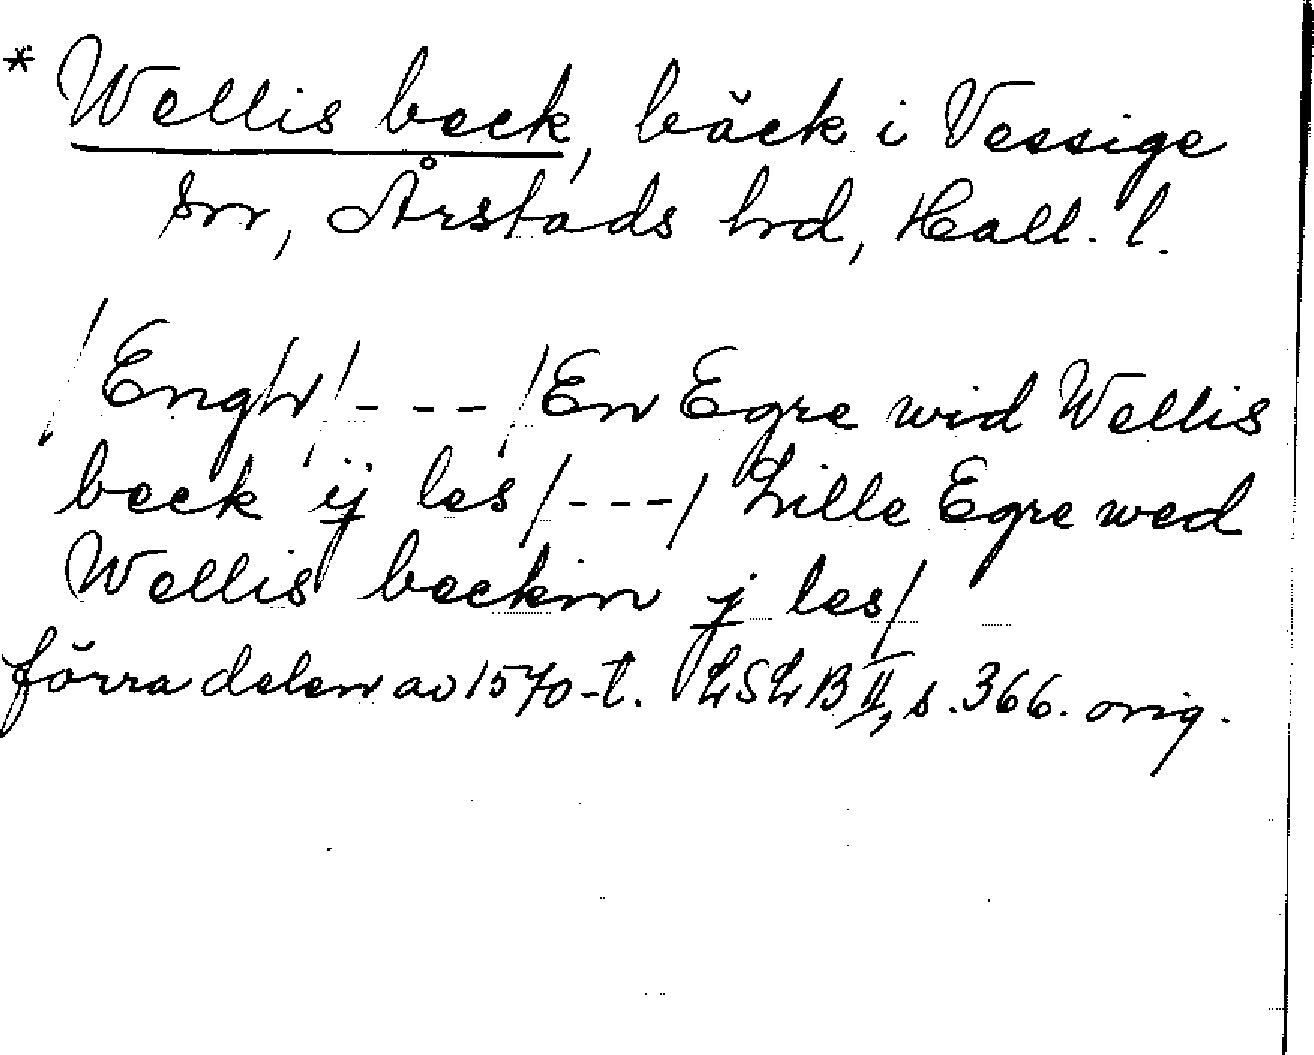 * Wellis beck, bäck i Vessige
sn, Årstads hd, Hall. l.
/Engh/ --- /En Egre wid Wellis
beck ij les/---/ Lille Egre wed
Wellis beckin j les/
förra delen av 1570-t. LSLB II, s. 366. orig.